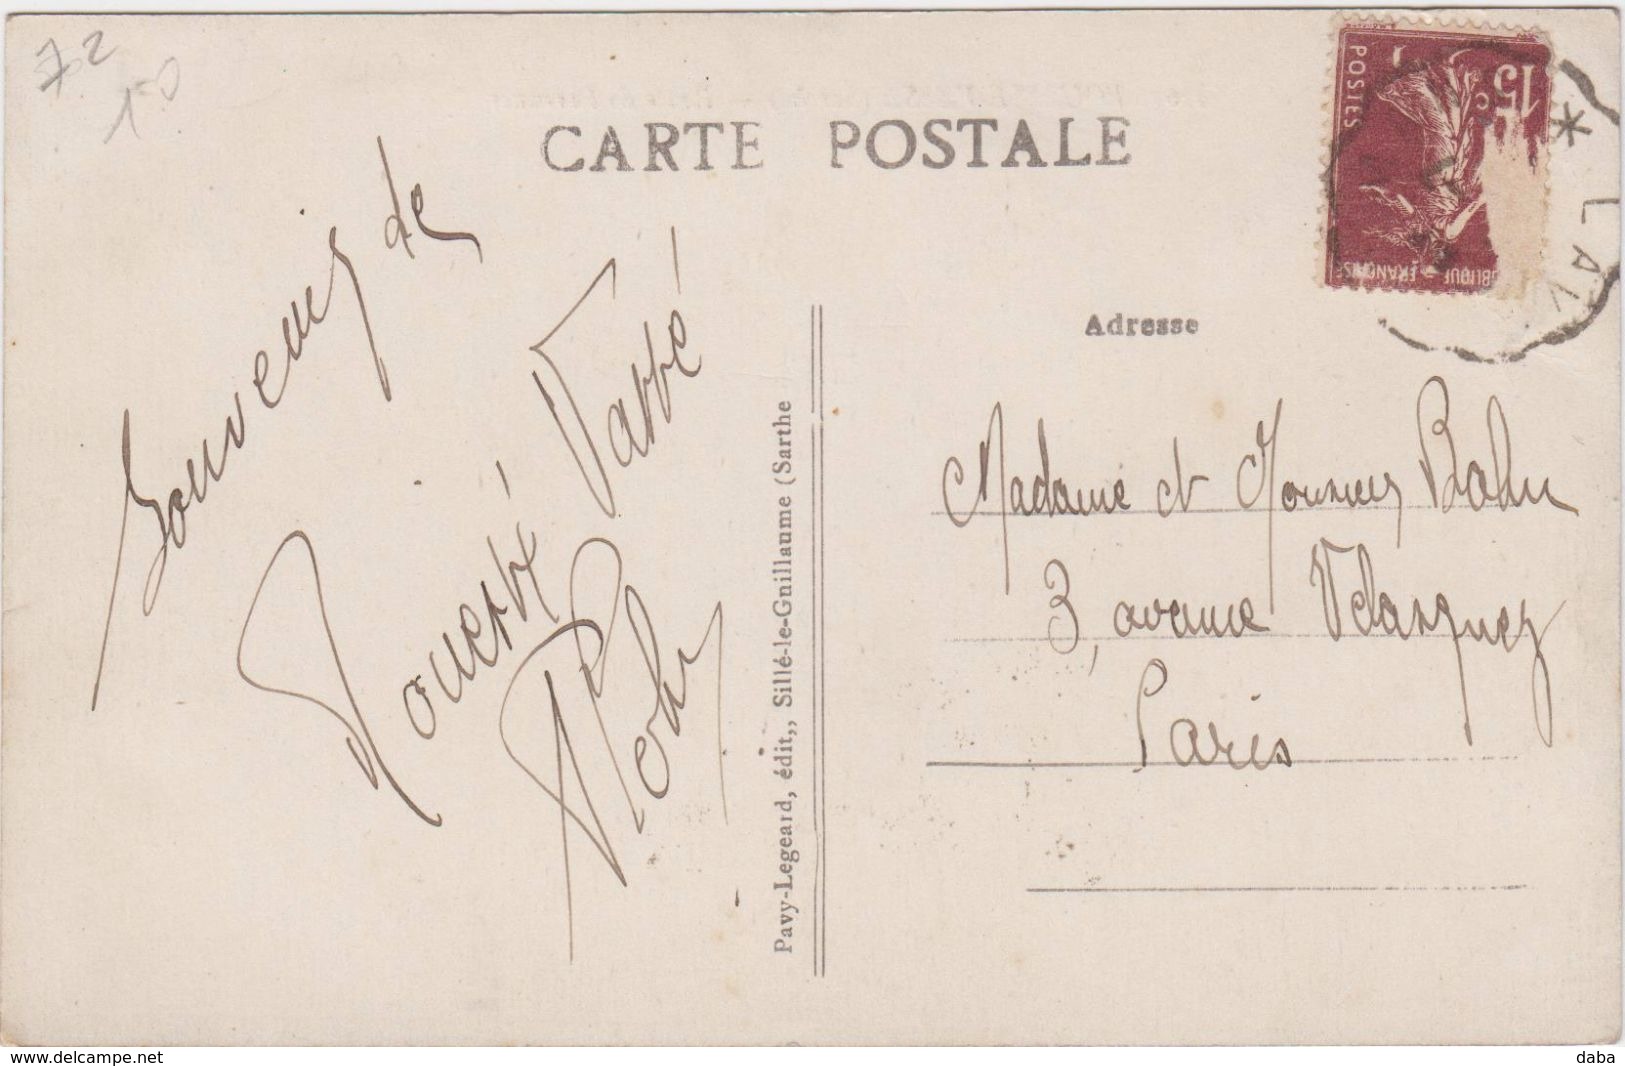 72
150
CARTE POSTALE
15c.
POSTES
FRANÇAISE
* LAV
Souvenir de
Rouessé Vassé
Adresse
Madame et Monsieur Bahu
3, avenue Velasquez
Paris
Pavy-Legeard, édit,, Sillé-le-Guillaume (Sarthe
www.delcampe.net
daba